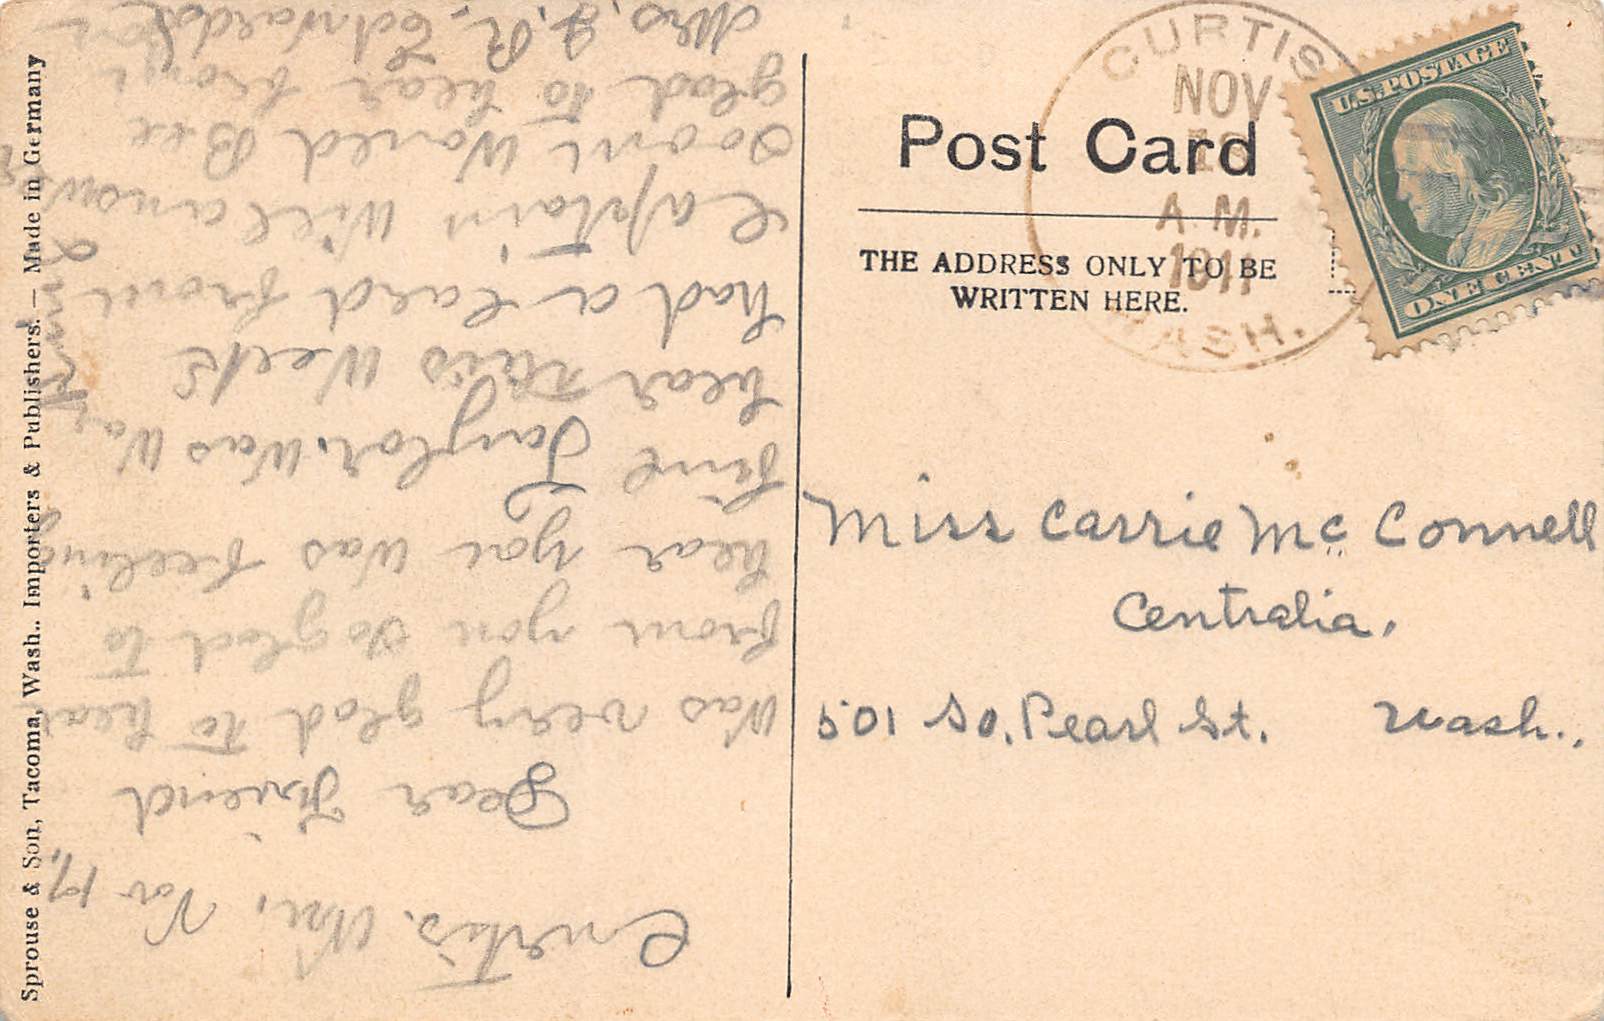 Sprouse & Son, Tacoma, Wash.. Importers & Publishers. — Made in Germany
Curtis. Wn, Nov 17,
Dear Friend
Was very glad to hear
from you so glad to
hear you was feeling
fine Taylor. Was
hear this Week
had a card from
Captain Will
soon Would Bee
glad to hear from
Mrs. J. R. Edwards
Post Card
THE ADDRESS ONLY TO BE
WRITTEN HERE.
CURTIS
NOV
A.M.
1911
WASH.
U.S. POSTAGE
ONE CENT
Miss Carrie McConnell
Centralia,
501 So. Pearl St. Wash..,